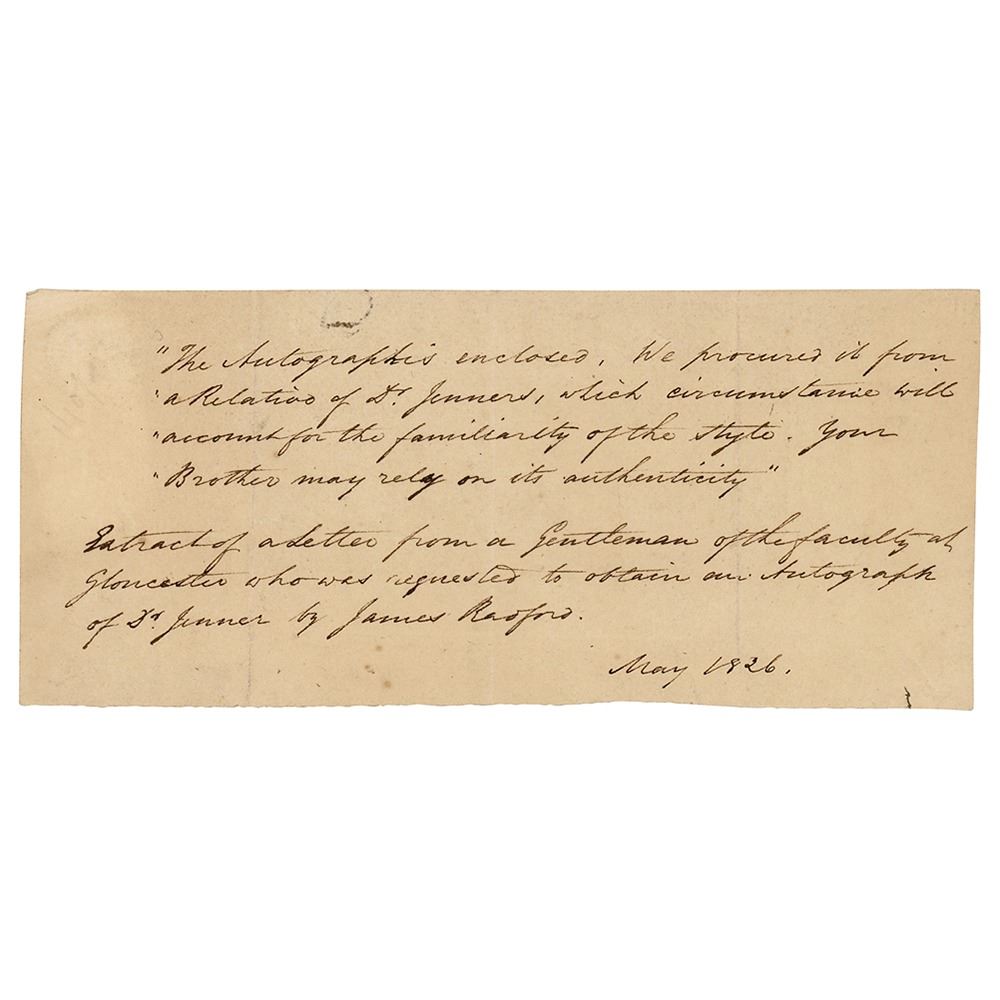 "The Autograph is enclosed, We procured it from
"a Relative of Dr Jenners, which circumstance will
"account for the familiarity of the style. Your
"Brother may rely on its authenticity"
Extract of a Letter from a Gentleman of the faculty at
Gloucester who was requested to obtain an Autograph
of Dr Jenner by James Radford.
May 1826.